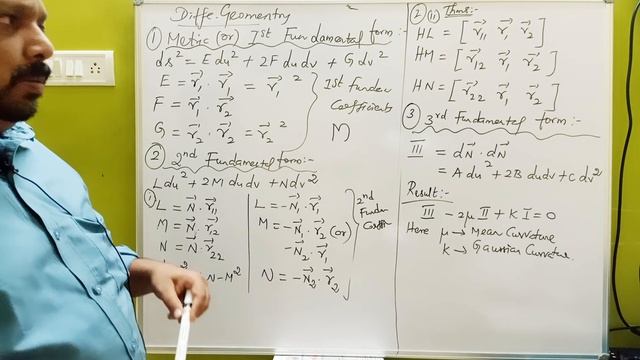 Diffe. Geometry
① Metric (or) Ist Fundamental form:-
ds² = E du² + 2F du dv + G dv²
E = r⃗₁ . r⃗₁ = r⃗₁²
F = r⃗₁ . r⃗₂
G = r⃗₂ . r⃗₂ = r⃗₂²
Ist Funda
Coefficients
② 2nd Fundamental form:-
Ldu² + 2M du dv + Ndv²
① L = N⃗ . r⃗₁₁
M = N⃗ . r⃗₁₂
N = N⃗ . r⃗₂₂
N - M²
L = -N⃗₁ . r⃗₁
M = -N⃗₁ . r⃗₂ (or)
-N⃗₂ . r⃗₁
N = -N⃗₂ . r⃗₂
2nd
Funda
② (ii) Thms:-
HL = [r⃗₁₁ r⃗₁ r⃗₂]
HM = [r⃗₁₂ r⃗₁ r⃗₂]
HN = [r⃗₂₂ r⃗₁ r⃗₂]
③ 3rd Fundamental form:-
III = dN⃗ . dN⃗
= A du² + 2B du dv + C dv²
Result:-
III - 2μ II + K I = 0
Here μ → Mean Curvature
K → Gaussian Curvature.